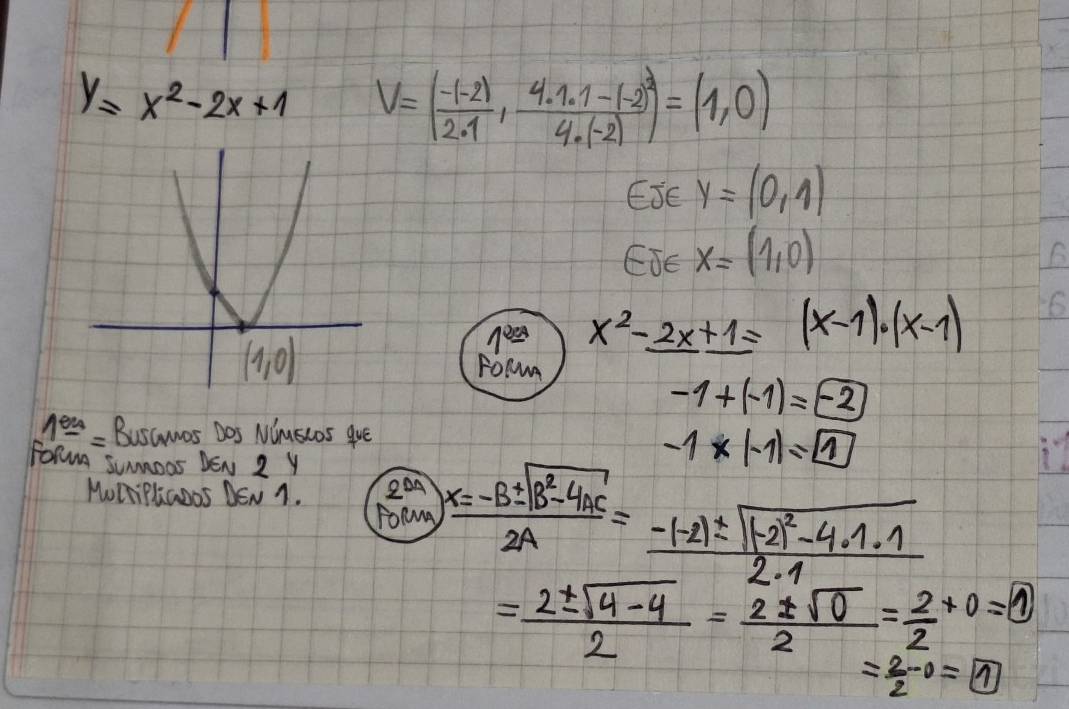 y = x² - 2x + 1
V = (-(-2)/2.1 , 4.1.1-(-2)²/4.(-2)) = (1,0)
EJE Y = (0,1)
EJE X = (1,0)
(1,0)
1era FORMA
x² - 2x + 1 = (x-1).(x-1)
-1 + (-1) = -2
-1 x (-1) = 1
1era FORMA = BUSCAMOS DOS NÚMEROS QUE
SUMADOS DEN 2 Y
MULTIPLICADOS DEN 1.
2DA FORMA
X = -B ± √B² - 4AC / 2A = -(-2) ± √(-2)² - 4.1.1 / 2.1
= 2 ± √4-4 / 2 = 2 ± √0 / 2 = 2/2 + 0 = 1
= 2/2 - 0 = 1